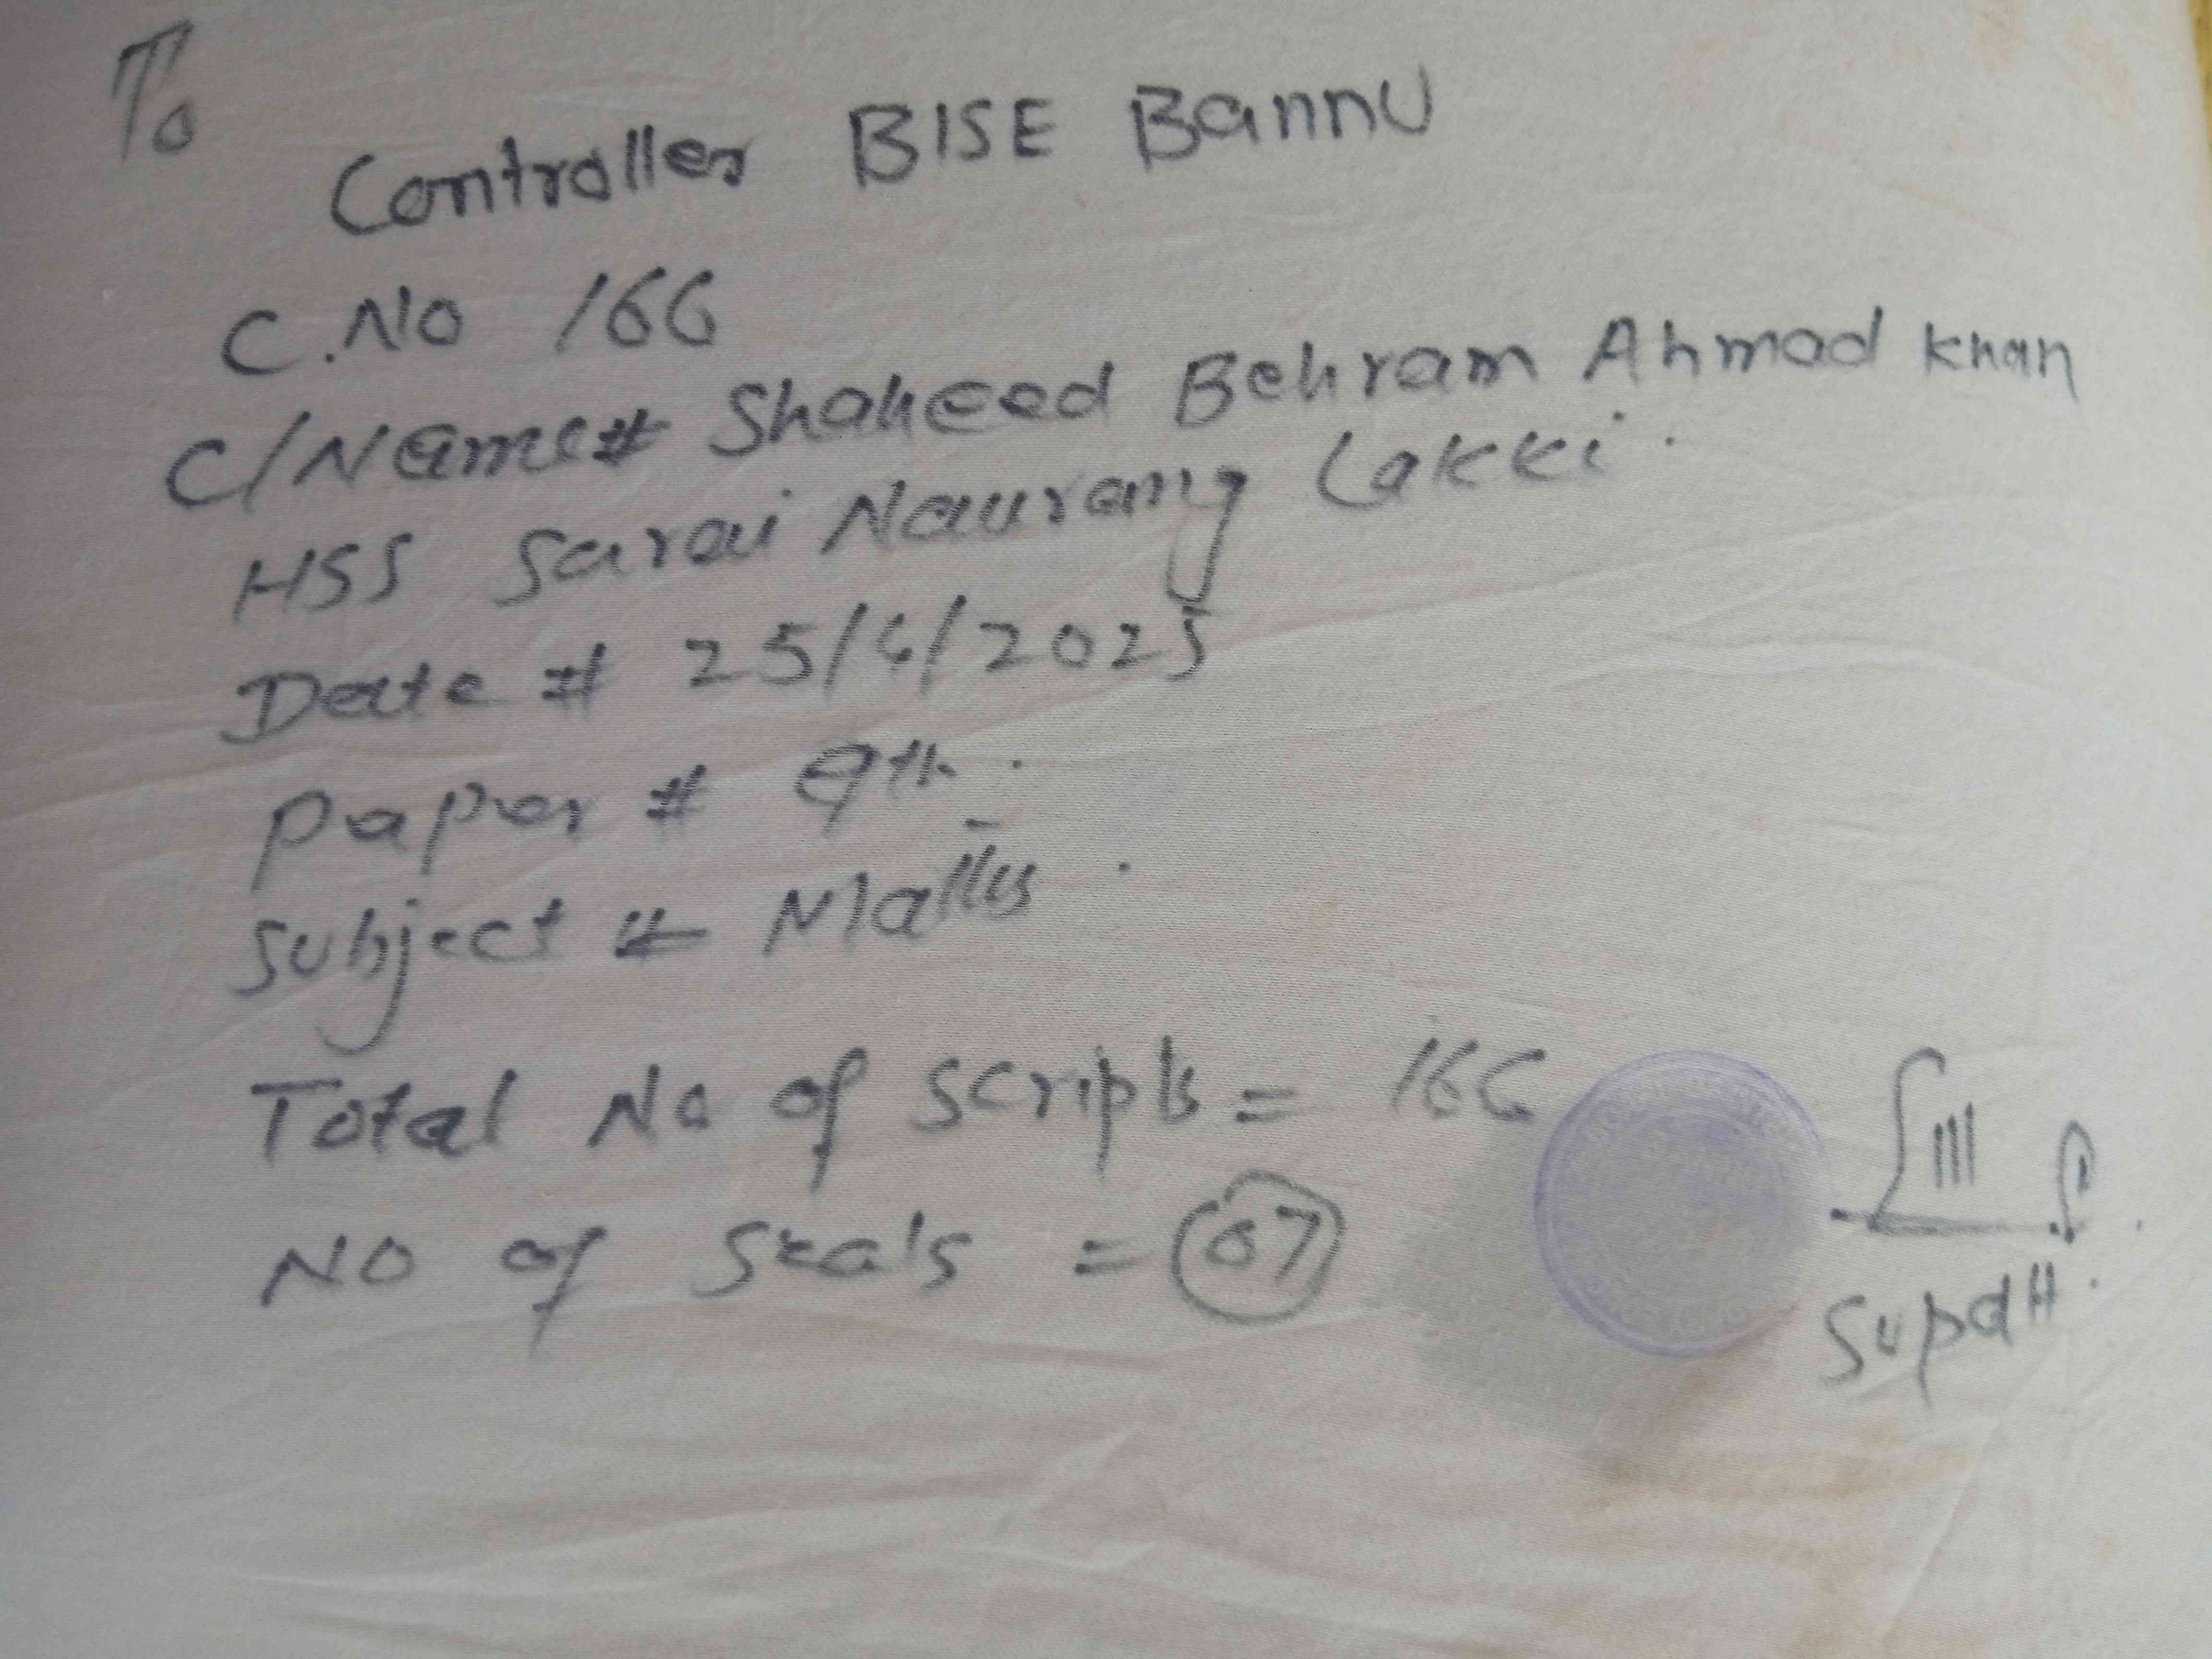 To
Controller BISE Bannu
C.No 166
C/Name# Shaheed Behram Ahmad Khan
HSS Sarai Naurang Lakki.
Date # 25/4/2025
Paper # 9th.
Subject # Maths.
Total No of Scripts = 166
No of Seals = 07
Supdtt.